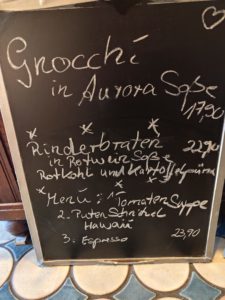 Gnocchi
in Aurora Soße
17,90
Rinderbraten 22,90
in Rotwein Soße
Rotkohl und Kartoffelpüree
Menü: 1. Tomaten Suppe
2. Puten Schnitzel
Hawaii
3. Espresso 23,90